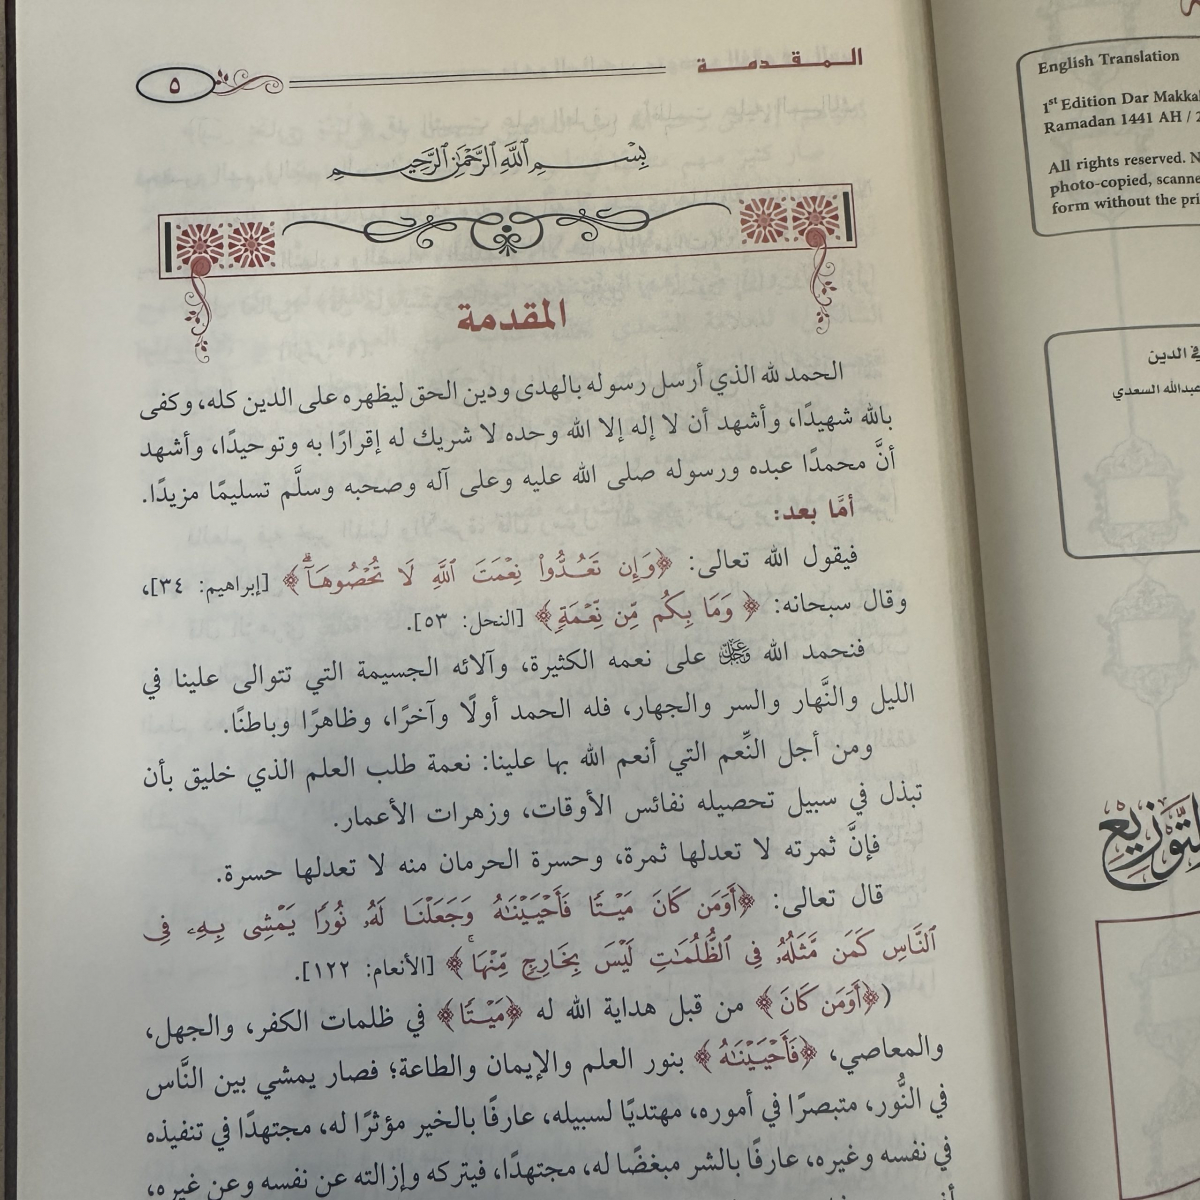 المقدمة
٥
بِسْمِ ٱللَّهِ ٱلرَّحْمَٰنِ ٱلرَّحِيمِ
المقدمة
الحمد لله الذي أرسل رسوله بالهدى ودين الحق ليظهره على الدين كله، وكفى
بالله شهيدًا، وأشهد أن لا إله إلا الله وحده لا شريك له إقرارًا به وتوحيدًا، وأشهد
أنَّ محمدًا عبده ورسوله صلى الله عليه وعلى آله وصحبه وسلَّم تسليمًا مزيدًا.
أمَّا بعد:
فيقول الله تعالى: ﴿وَإِن تَعُدُّواْ نِعْمَتَ ٱللَّهِ لَا تُحْصُوهَآۗ﴾ [إبراهيم: ٣٤]،
وقال سبحانه: ﴿وَمَا بِكُم مِّن نِّعْمَةٍ﴾ [النحل: ٥٣].
فنحمد الله عَزَّوَجَلَّ على نعمه الكثيرة، وآلائه الجسيمة التي تتوالى علينا في
الليل والنَّهار والسر والجهار، فله الحمد أولًا وآخرًا، وظاهرًا وباطنًا.
ومن أجل النِّعم التي أنعم الله بها علينا: نعمة طلب العلم الذي خليق بأن
تبذل في سبيل تحصيله نفائس الأوقات، وزهرات الأعمار.
فإنَّ ثمرته لا تعدلها ثمرة، وحسرة الحرمان منه لا تعدلها حسرة.
قال تعالى: ﴿أَوَمَن كَانَ مَيْتًا فَأَحْيَيْنَٰهُ وَجَعَلْنَا لَهُۥ نُورًا يَمْشِى بِهِۦ فِى
ٱلنَّاسِ كَمَن مَّثَلُهُۥ فِى ٱلظُّلُمَٰتِ لَيْسَ بِخَارِجٍ مِّنْهَاۚ﴾ [الأنعام: ١٢٢].
(﴿أَوَمَن كَانَ﴾ من قبل هداية الله له ﴿مَيْتًا﴾ في ظلمات الكفر، والجهل،
والمعاصي، ﴿فَأَحْيَيْنَٰهُ﴾ بنور العلم والإيمان والطاعة؛ فصار يمشي بين النَّاس
في النُّور، متبصرًا في أموره، مهتديًا لسبيله، عارفًا بالخير مؤثرًا له، مجتهدًا في تنفيذه
في نفسه وغيره، عارفًا بالشر مبغضًا له، مجتهدًا، فيتركه وإزالته عن نفسه وعن غيره،
English Translation
1st Edition Dar Makkah
Ramadan 1441 AH / 2
All rights reserved. N
photo-copied, scanne
form without the pri
في الدين
عبدالله السعدي
التوزيع